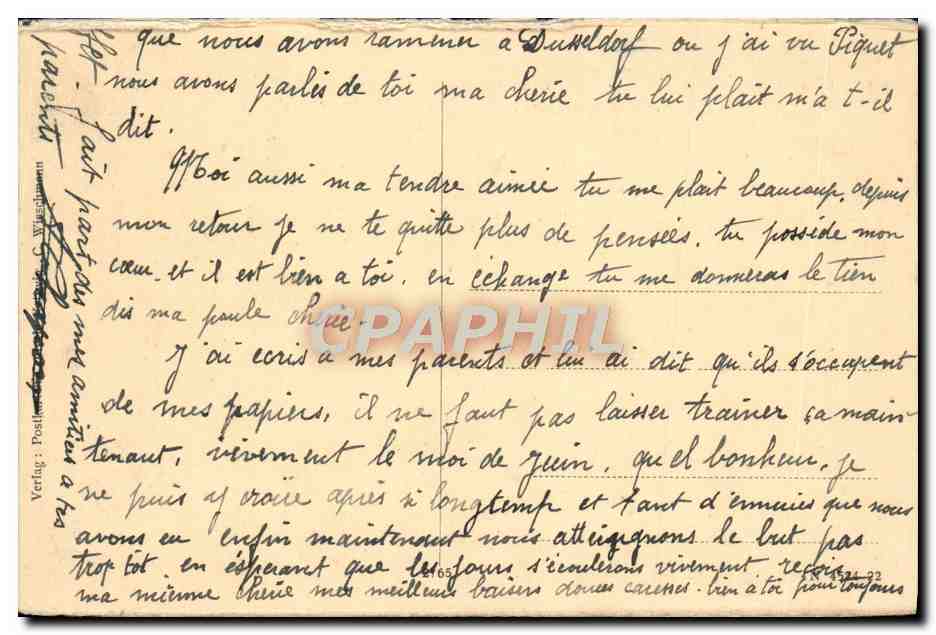 que nous avons ramener à Dusseldorf ou j'ai vu Piquet
nous avons parlés de toi ma cherie tu lui plait m'a t-il
dit.
Moi aussi ma tendre aimée tu me plait beaucoup, depuis
mon retour je ne te quitte plus de pensées, tu posséde mon
cœur, et il est bien a toi, en échange tu me donneras le tien
dis ma poule cherie.
J'ai ecris a mes parents et lui ai dit qu'ils s'occupent
de mes papiers, il ne faut pas laisser trainer ça main-
tenant, vivement le moi de Juin, quel bonheur, je
ne puis y croire après si longtemp et tant d'ennuies que nous
avons eu enfin maintenant nous atteignons le but pas
trop tôt, en espérant que les jours s'écoulerons vivement reçois
ma mienne cherie mes meilleurs baisers douces caresses. bien à toi pour toujours
fait part des mes amitiers a tes
parents
Verlag: Wirschmann
2765
4524 22
CPAPHIL